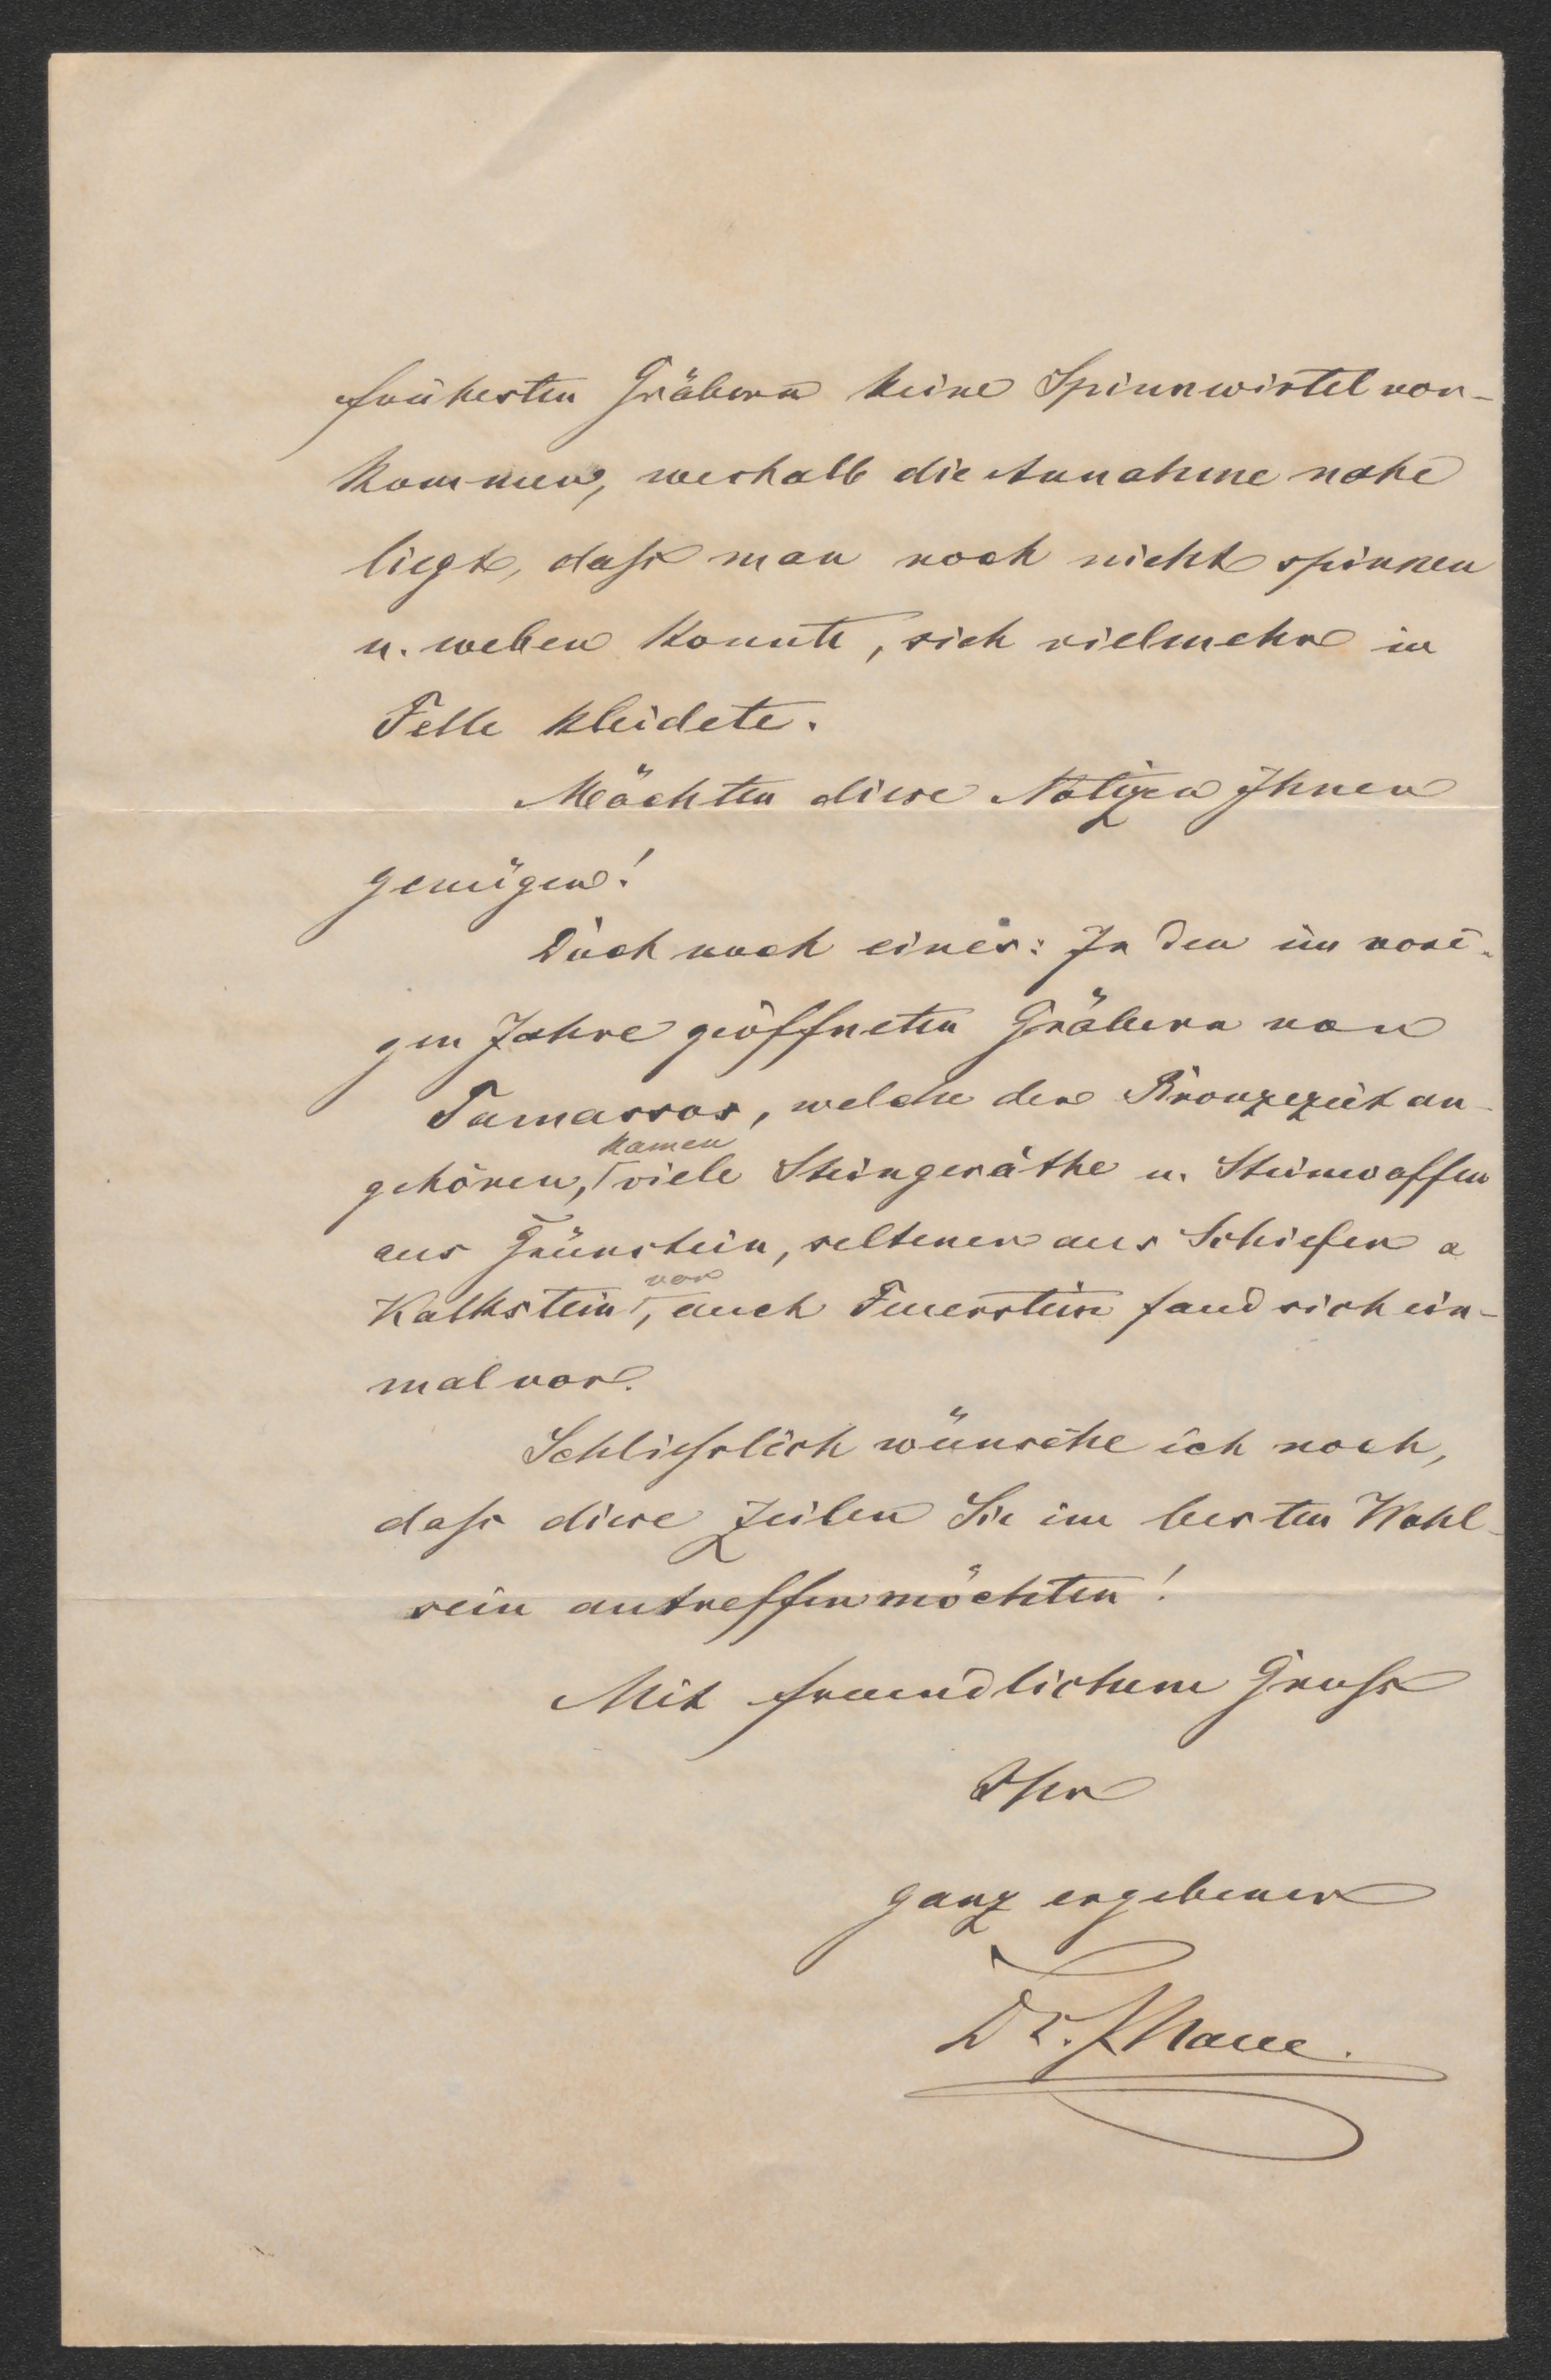 frühesten Gräbern keine Spinnwirtel vor-
kommen, weshalb die Annahme nahe
liegt, dass man noch nicht spinnen
u. weben konnte, sich vielmehr in
Felle kleidete.
Möchten diese Notizen Ihnen
genügen!
Doch noch eines: In den im vori-
gen Jahre geöffneten Gräbern von
Tamassos, welche der Bronzezeit an-
kamen
gehören, viele Steingeräthe u. Steinwaffen
aus Grünstein, seltener aus Schiefer u
vor
Kalkstein, auch Feuerstein fand sich ein-
mal vor.
Schliesslich wünsche ich noch,
dass diese Zeilen Sie im besten Wohl-
sein antreffen möchten!
Mit freundlichem Gruss
Ihr
ganz ergebener
Dr. J Naue.